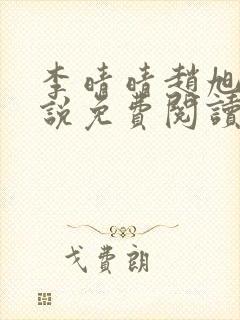 李晴晴趙旭
說免費閱讀
戈費朗